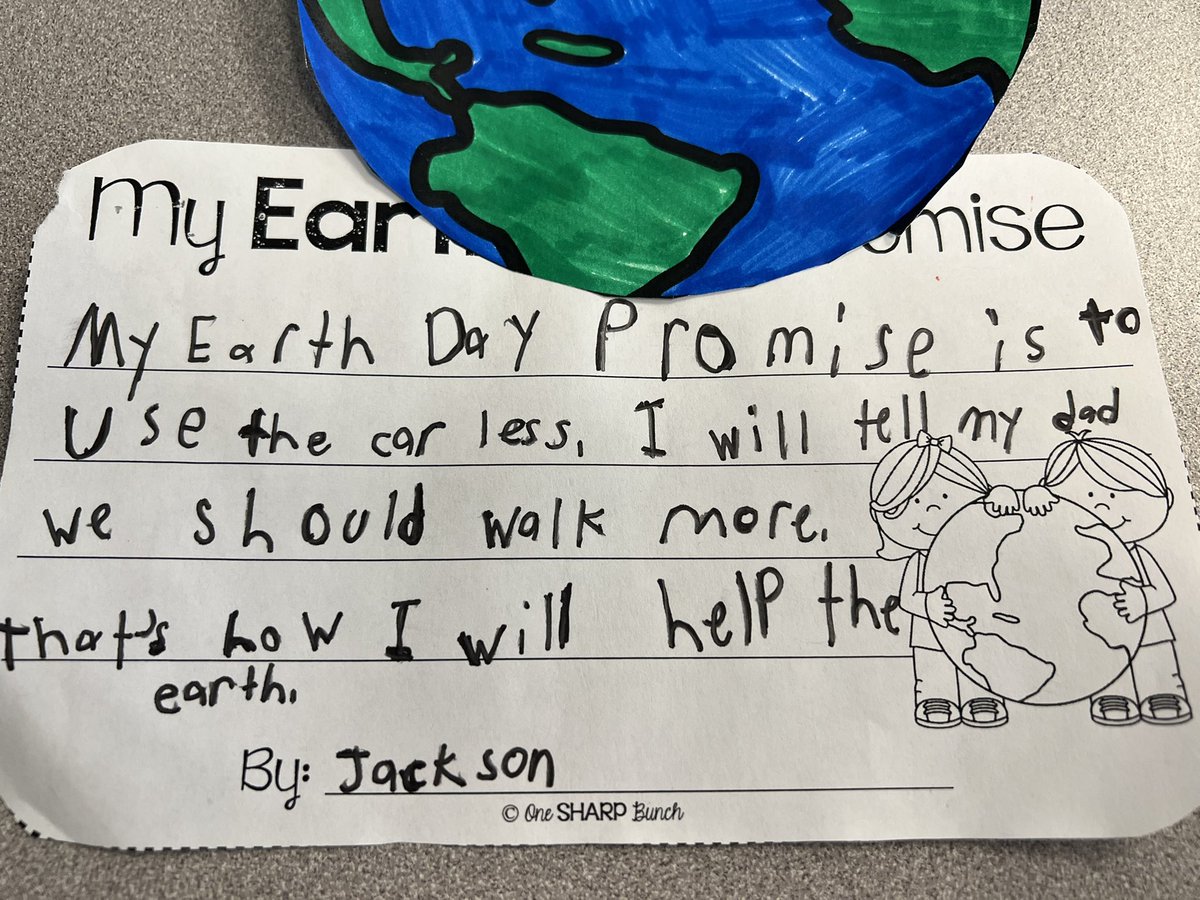 My Ear omise
My Earth Day Promise is to
Use the car less. I will tell my dad
we should walk more.
that's how I will help the
earth.
By: Jackson
© One SHARP Bunch